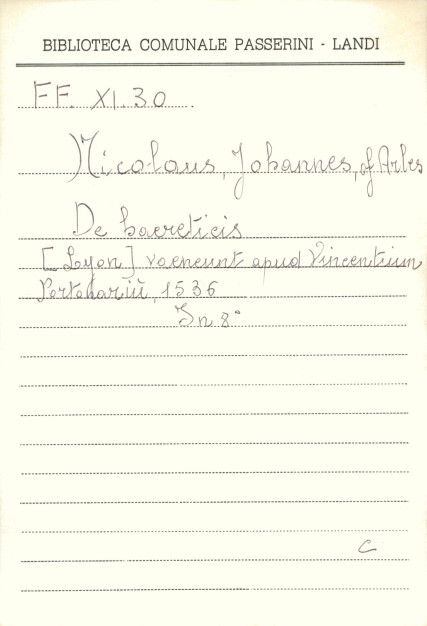 BIBLIOTECA COMUNALE PASSERINI - LANDI
FF. XI.30.
Nicolaus, Johannes, of Arles
De haereticis
[Lyon] vaeneunt apud Vincentium
Portonariũ, 1536
In 8°
C